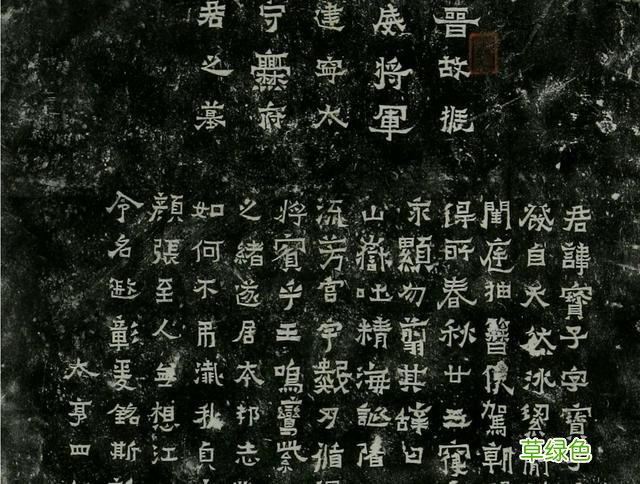 晉故振
威將軍
建寧太
守爨府
君之墓
君諱寶子字寶子
發自天然冰潔簡
閨庭抽簪俟駕朝
得所春秋廿五寢
永顯勿翦其辭曰
山嶽吐精海誕陼
流芳宮宇數仞循
將賓乎王鳴鸞紫
之緒遂居本邦志
如何不弔殲我貞
顏張至人無想江
令名遐彰爰銘斯
太亨四
草绿色